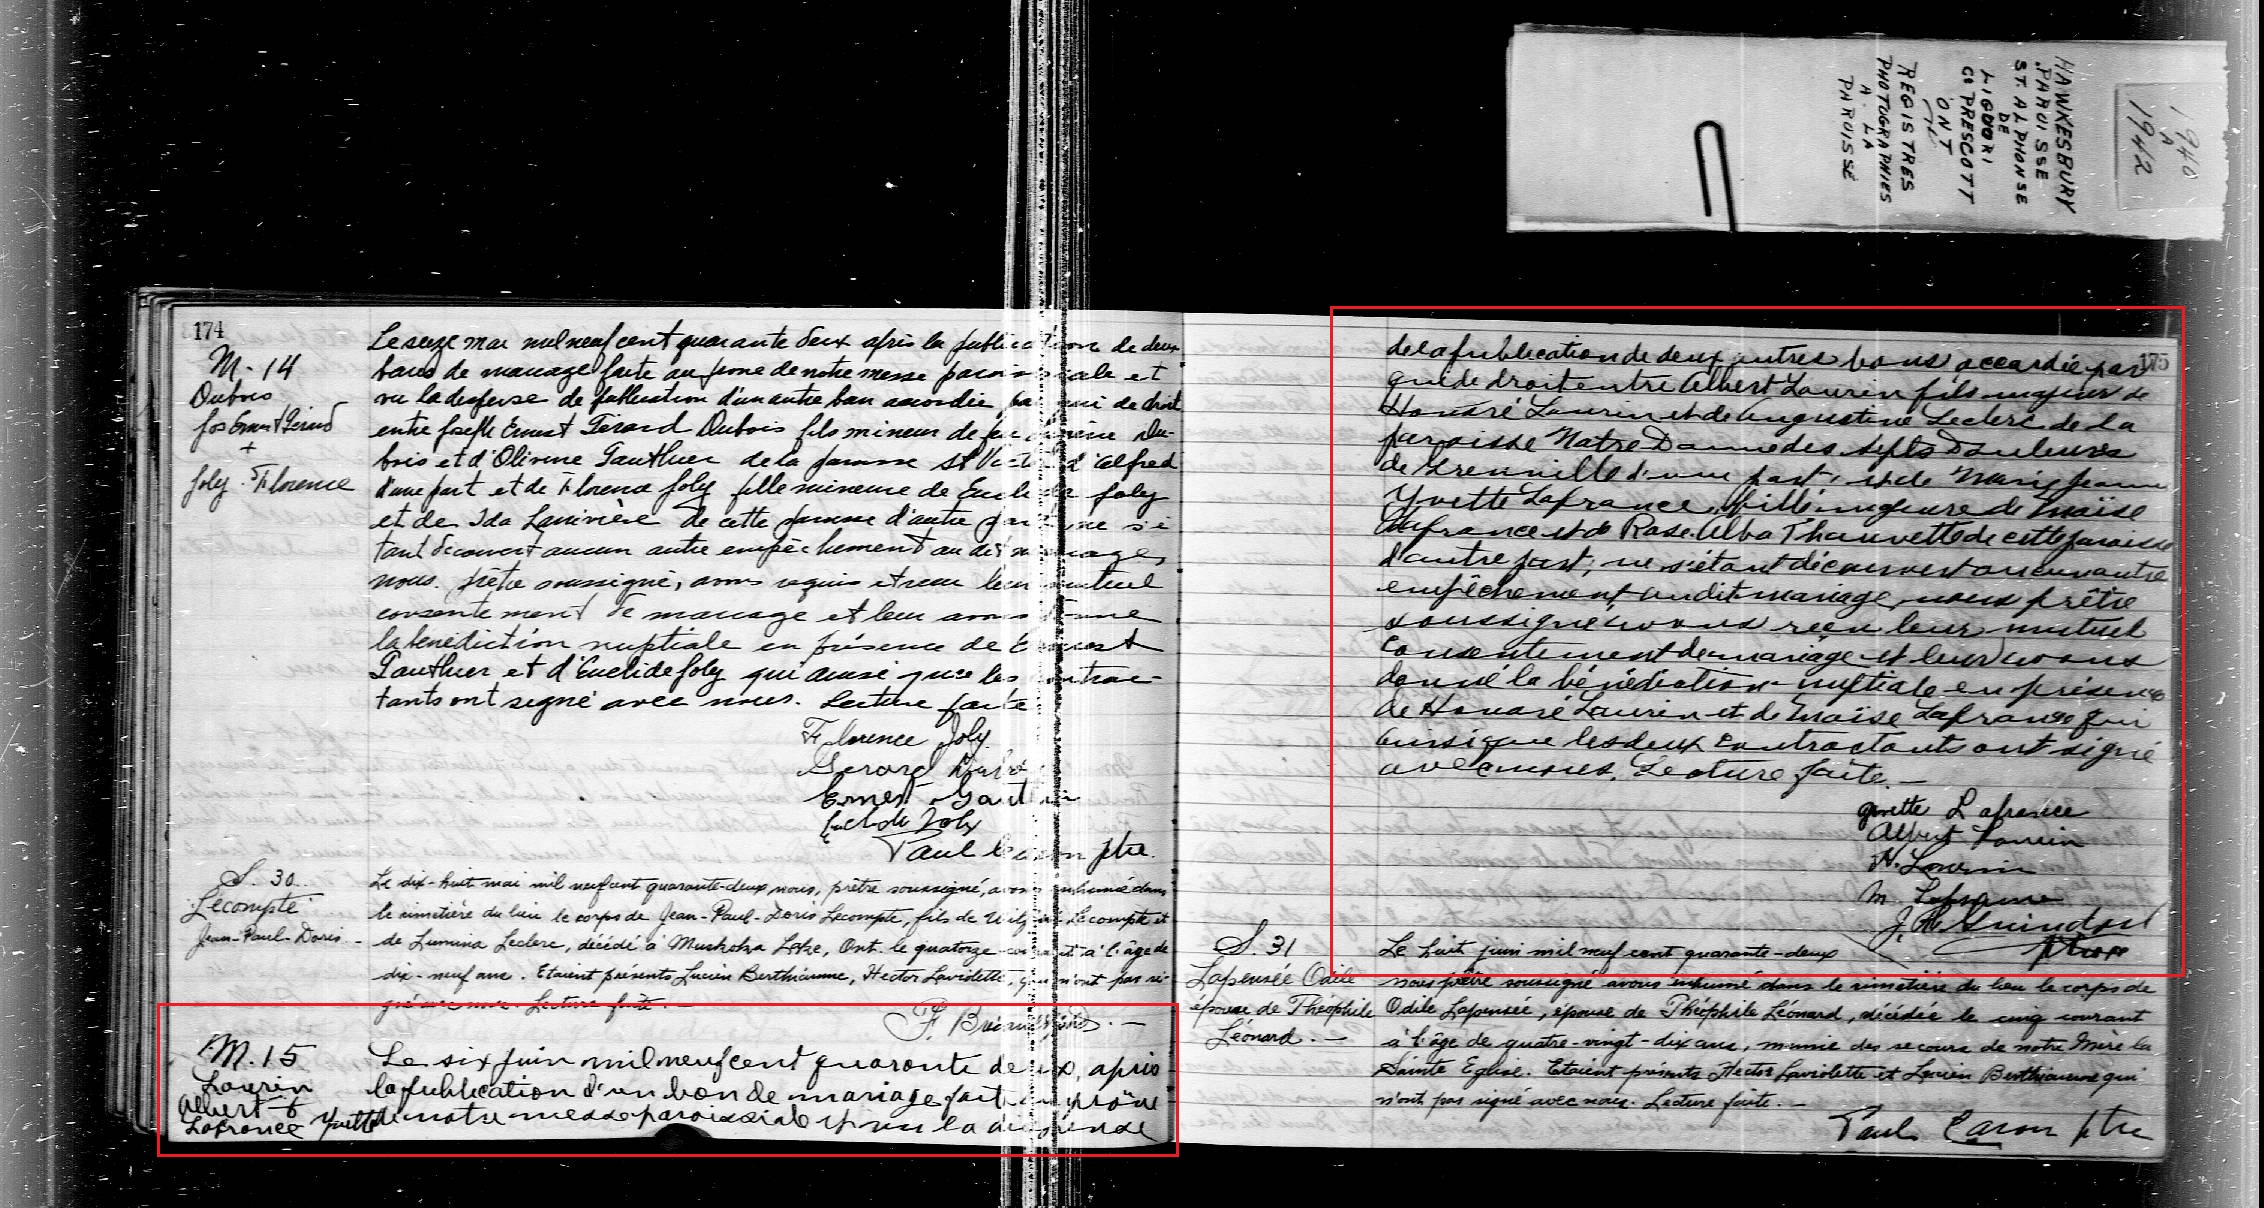 1940
A
1942
HAWKESBURY
PAROISSE
ST. ALPHONSE
DE
LIGUORI
Co PRESCOTT
ONT
REGISTRES
PHOTOGRAPHIES
A LA
PAROISSE
174
M. 14
Dubois
Jos Ernest Gérard
+
Joly Florence
Le seize mai mil neuf cent quarante deux après la publication de deux
bans de mariage faite au prone de notre messe paroissiale et
vu la dispense de publication d'un autre ban accordée par qui de droit
entre Joseph Ernest Gérard Dubois fils mineur de feu Du-
bois et d'Olivine Gauthier de la paroisse St Victor d'Alfred
d'une part et de Florence Joly fille mineure de Euclide Joly
et de Ida Larivière de cette paroisse d'autre part ne s'é
tant découvert aucun autre empêchement au dit mariage,
nous prêtre soussigné, avons requis et reçu leur mutuel
consentement de mariage et leur avons donné
la bénédiction nuptiale en présence de Ernest
Gauthier et d'Euclide Joly qui ainsi que les contrac-
tants ont signé avec nous. Lecture faite
Florence Joly
Gerard Dubois
Ernest Gauthier
Euclide Joly
Paul Caron ptre.
S. 30.
Lecompte
Jean-Paul-Doris -
Le dix-huit mai mil neuf cent quarante-deux nous, prêtre soussigné, avons inhumé dans
le cimetière du lieu le corps de Jean-Paul-Doris Lecompte, fils de Lecompte et
de Lumina Leclerc, décédé à Muskoka Lake, Ont. le quatorze courant à l'âge de
dix-neuf ans. Etaient présents Lucien Berthiaume, Hector Laviolette, qui n'ont pas si-
gné avec nous. Lecture faite. -
M. 15
Laurin
Albert &
Lafrance Yvette
Le six juin mil neuf cent quarante deux, après
la publication d'un ban de mariage faite au prône
de notre messe paroissiale et vu la dispense
175
de la publication de deux autres bans accordée par
qui de droit entre Albert Laurin fils majeur de
Honoré Laurin et de Augustine Leclerc de la
paroisse Notre Dame des Septs Douleures
de Grenville d'une part, et de Marie Jeanne
Yvette Lafrance, fille majeure de Moïse
Lafrance et de Rose-Alba Thauvette de cette paroisse
d'autre part; ne s'étant découvert aucun autre
empêchement au dit mariage, nous prêtre
soussigné avons reçu leur mutuel
consentement de mariage et leur avons
donné la bénédiction nuptiale en présence
de Honoré Laurin et de Moïse Lafrance qui
ainsi que les deux contractants ont signé
avec nous. Lecture faite. -
Yvette Lafrance
Albert Laurin
H. Laurin
M. Lafrance
J. H. Guindon
ptre
S. 31
Lapensée Odile
épouse de Théophile
Léonard. -
Le huit juin mil neuf cent quarante-deux
nous prêtre soussigné avons inhumé dans le cimetière du lieu le corps de
Odile Lapensée, épouse de Théophile Léonard, décédée le cinq courant
à l'âge de quatre-vingt-dix ans, munie des secours de notre Mère la
Sainte Eglise. Etaient présents Hector Laviolette et Lucien Berthiaume qui
n'ont pas signé avec nous. Lecture faite. -
Paul Caron ptre